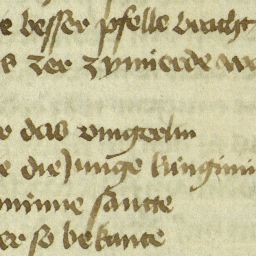 e besser pfelle bracht
s zer zymierde we
r das vingerlin
e die junge künginn
minne sante
er so bekante